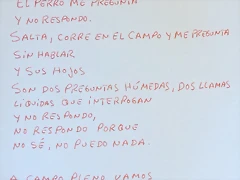 EL PERRO ME PREGUNTA
Y NO RESPONDO.
SALTA, CORRE EN EL CAMPO Y ME PREGUNTA
SIN HABLAR
Y SUS HOJOS
SON DOS PREGUNTAS HÚMEDAS, DOS LLAMAS
LIQUIDAS QUE INTERROGAN
Y NO RESPONDO,
NO RESPONDO PORQUE
NO SÉ, NO PUEDO NADA.
A CAMPO PLENO VAMOS